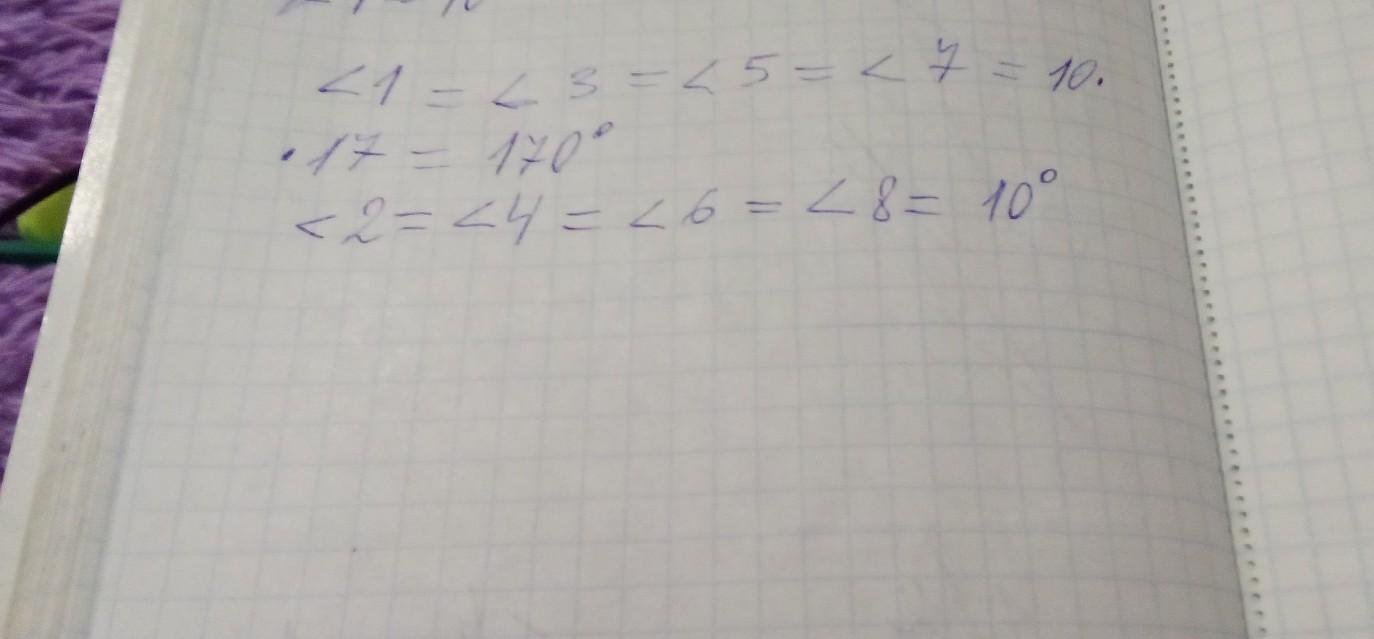 <1 = <3 = <5 = <7 = 10.
·17 = 170°
<2 = <4 = <6 = <8 = 10°